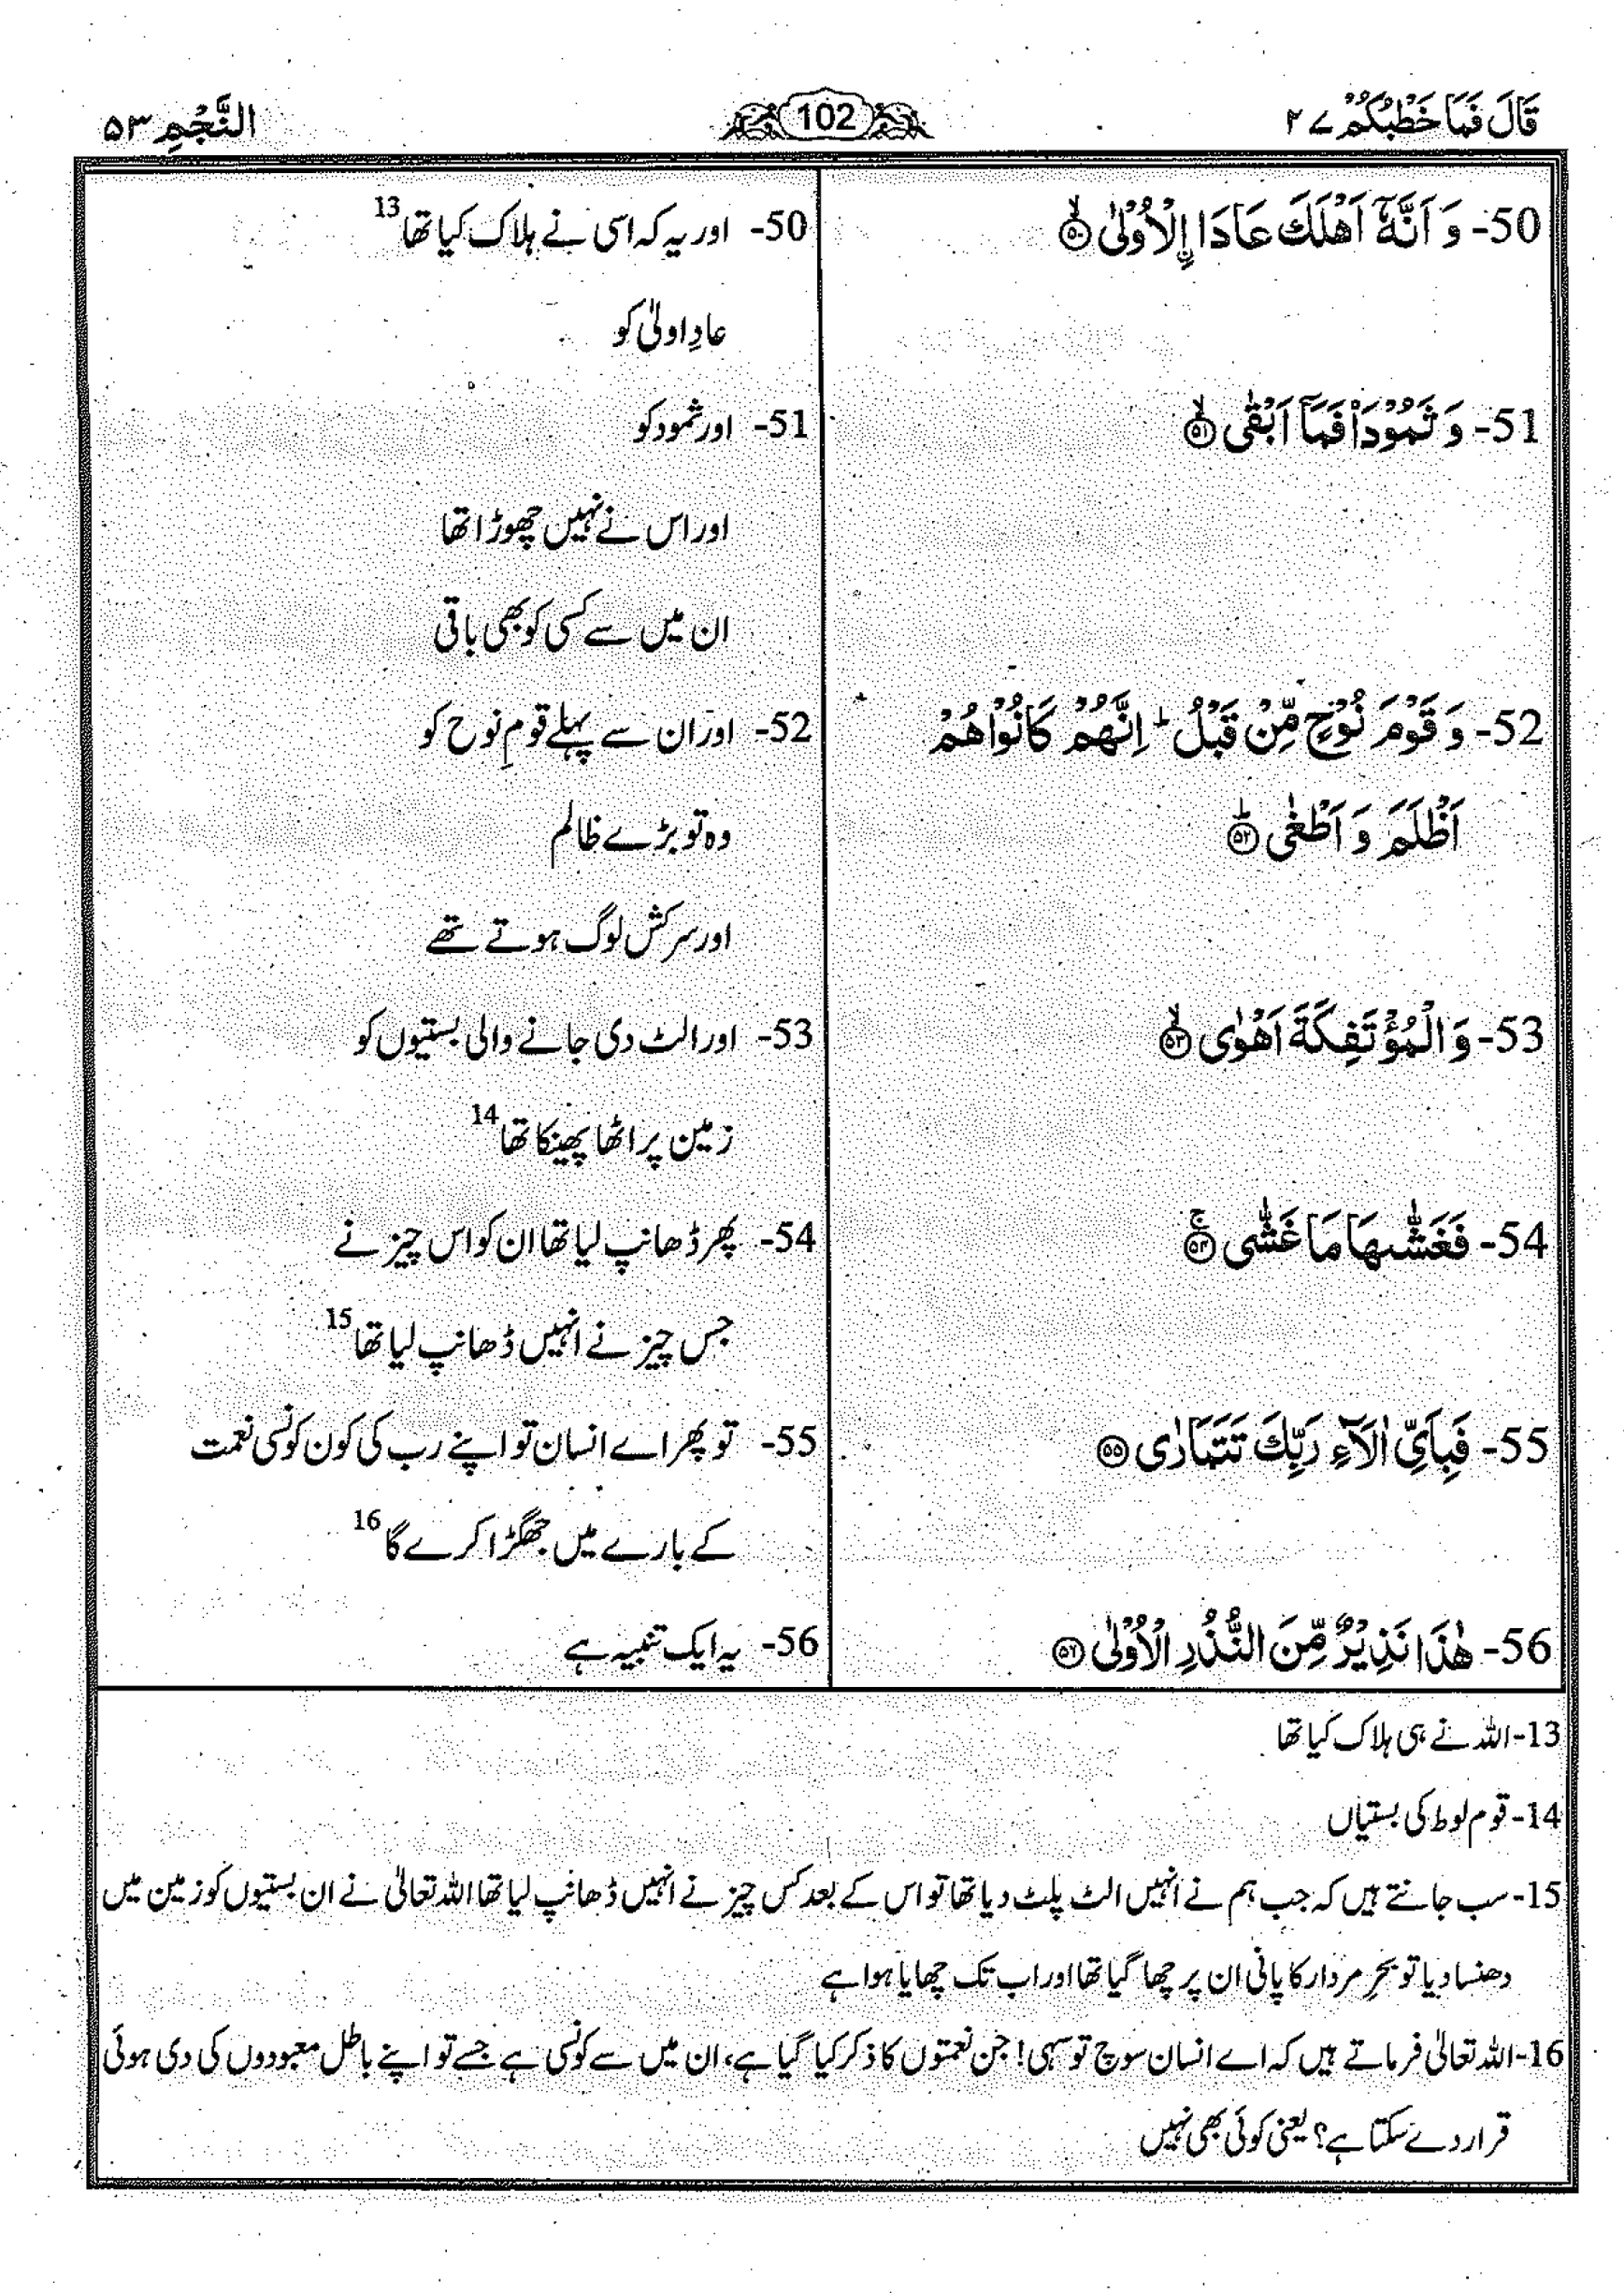 قَالَ فَمَا خَطْبُكُمْ ۲۷
102
النَّجْمِ ۵۳
50- وَ اَنَّهٗۤ اَهْلَكَ عَادَا ِ۟الْاُوْلٰى ۙ﴿۵۰﴾
50- اور یہ کہ اسی نے ہلاک کیا تھا 13
عادِ اولیٰ کو
51- وَ ثَمُوْدَا۠ فَمَاۤ اَبْقٰى ۙ﴿۵۱﴾
51- اور ثمود کو
اور اس نے نہیں چھوڑا تھا
ان میں سے کسی کو بھی باقی
52- وَ قَوْمَ نُوْحٍ مِّنْ قَبْلُ ؕ اِنَّهُمْ كَانُوْا هُمْ
اَظْلَمَ وَ اَطْغٰى ؕ﴿۵۲﴾
52- اور ان سے پہلے قومِ نوح کو
وہ تو بڑے ظالم
اور سرکش لوگ ہوتے تھے
53- وَ الْمُؤْتَفِكَةَ اَهْوٰى ۙ﴿۵۳﴾
53- اور الٹ دی جانے والی بستیوں کو
زمین پر اٹھا پھینکا تھا 14
54- فَغَشّٰىهَا مَا غَشّٰى ۚ﴿۵۴﴾
54- پھر ڈھانپ لیا تھا ان کو اس چیز نے
جس چیز نے انہیں ڈھانپ لیا تھا 15
55- فَبِاَیِّ اٰلَآءِ رَبِّكَ تَتَمَارٰى ﴿۵۵﴾
55- تو پھر اے انسان تو اپنے رب کی کون کونسی نعمت
کے بارے میں جھگڑا کرے گا 16
56- هٰذَا نَذِیْرٌ مِّنَ النُّذُرِ الْاُوْلٰى ﴿۵۶﴾
56- یہ ایک تنبیہ ہے
13- اللہ نے ہی ہلاک کیا تھا
14- قوم لوط کی بستیاں
15- سب جانتے ہیں کہ جب ہم نے انہیں الٹ پلٹ دیا تھا تو اس کے بعد کس چیز نے انہیں ڈھانپ لیا تھا اللہ تعالیٰ نے ان بستیوں کو زمین میں
دھنسا دیا تو بحرِ مردار کا پانی ان پر چھا گیا تھا اور اب تک چھایا ہوا ہے
16- اللہ تعالیٰ فرماتے ہیں کہ اے انسان سوچ تو سہی! جن نعمتوں کا ذکر کیا گیا ہے، ان میں سے کونسی ہے جسے تو اپنے باطل معبودوں کی دی ہوئی
قرار دے سکتا ہے؟ یعنی کوئی بھی نہیں